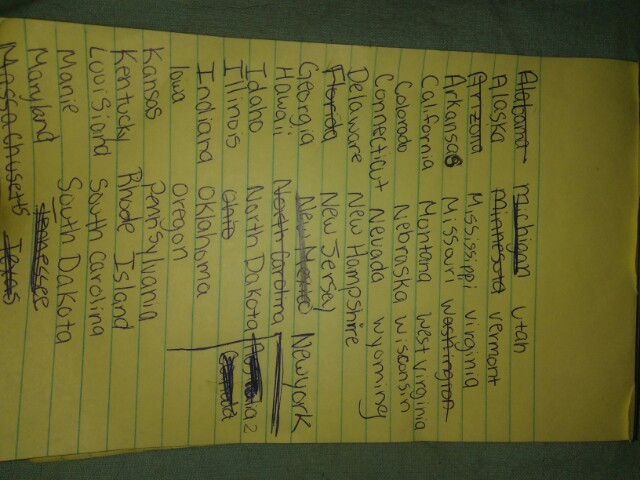 Alabama Michigan Utah
Alaska Minnesota Vermont
Arizona Mississippi Virginia
Arkansas Missouri Washington
California Montana West Virginia
Colorado Nebraska Wisconsin
Connecticut Nevada Wyoming
Delaware New Hampshire
Florida New Jersay
Georgia New Mexico New york
Hawaii North Carolina
Idaho North Dakota 2
Illinois Ohio Canada
Indiana Oklahoma
Iowa Oregon
Kansas Pennsylvania
Kentucky Rhode Island
Louisiana South Carolina
Manie South Dakota
Maryland Tennessee
Massachusetts Texas